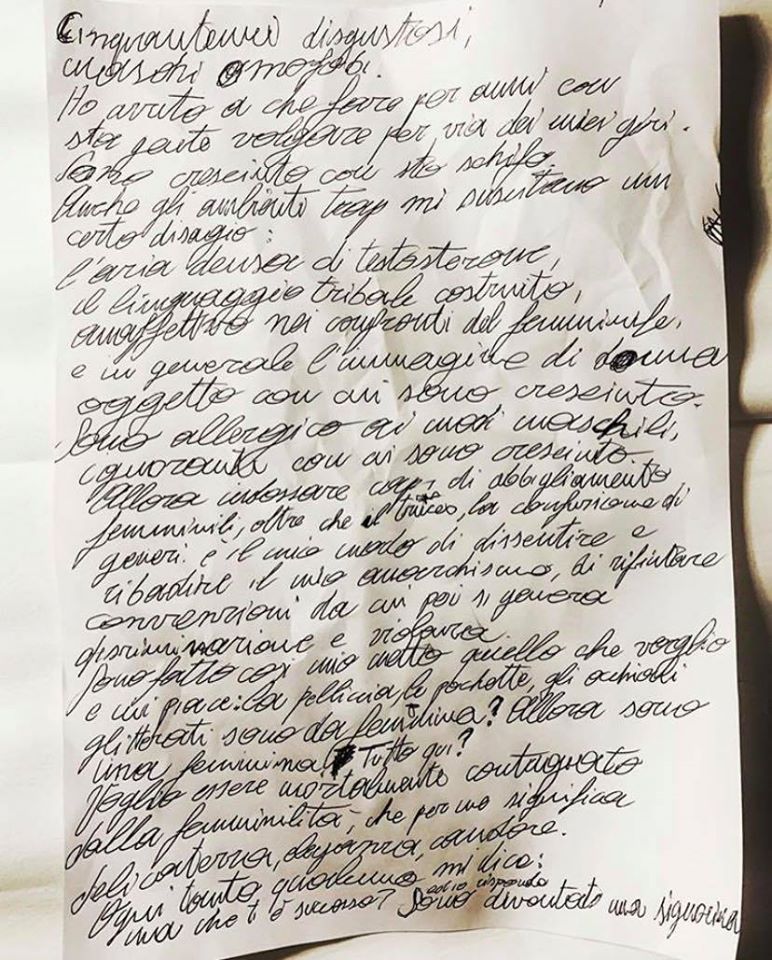 Cinquantenni disgustosi,
maschi omofobi.
Ho avuto a che fare per anni con
sta gente volgare per via dei miei giri.
Sono cresciuto con sto schifo.
Anche gli ambienti trap mi suscitano un
certo disagio:
l'aria densa di testosterone,
il linguaggio tribale costruito,
anaffettivo nei confronti del femminile,
e in generale l'immagine di donna
oggetto con cui sono cresciuto.
Sono allergico ai modi maschili,
ignoranti con cui sono cresciuto.
Allora indossare capi di abbigliamento
femminili, oltre che il trucco, la confusione di
generi è il mio modo di dissentire e
ribadire il mio anarchismo, di rifiutare
convenzioni da cui poi si genera
discriminazione e violenza.
Sono fatto così mio metto quello che voglio
e mi piace: la pelliccia, le pochette, gli occhiali
glitterati sono da femmina? Allora sono
una femmina. Tutto qui?
Voglio essere mortalmente contagiato
dalla femminilità, che per me significa
delicatezza, eleganza, candore.
Ogni tanto qualcuno mi dice:
ma che ti è successo? ed io rispondo Sono diventato una signorina